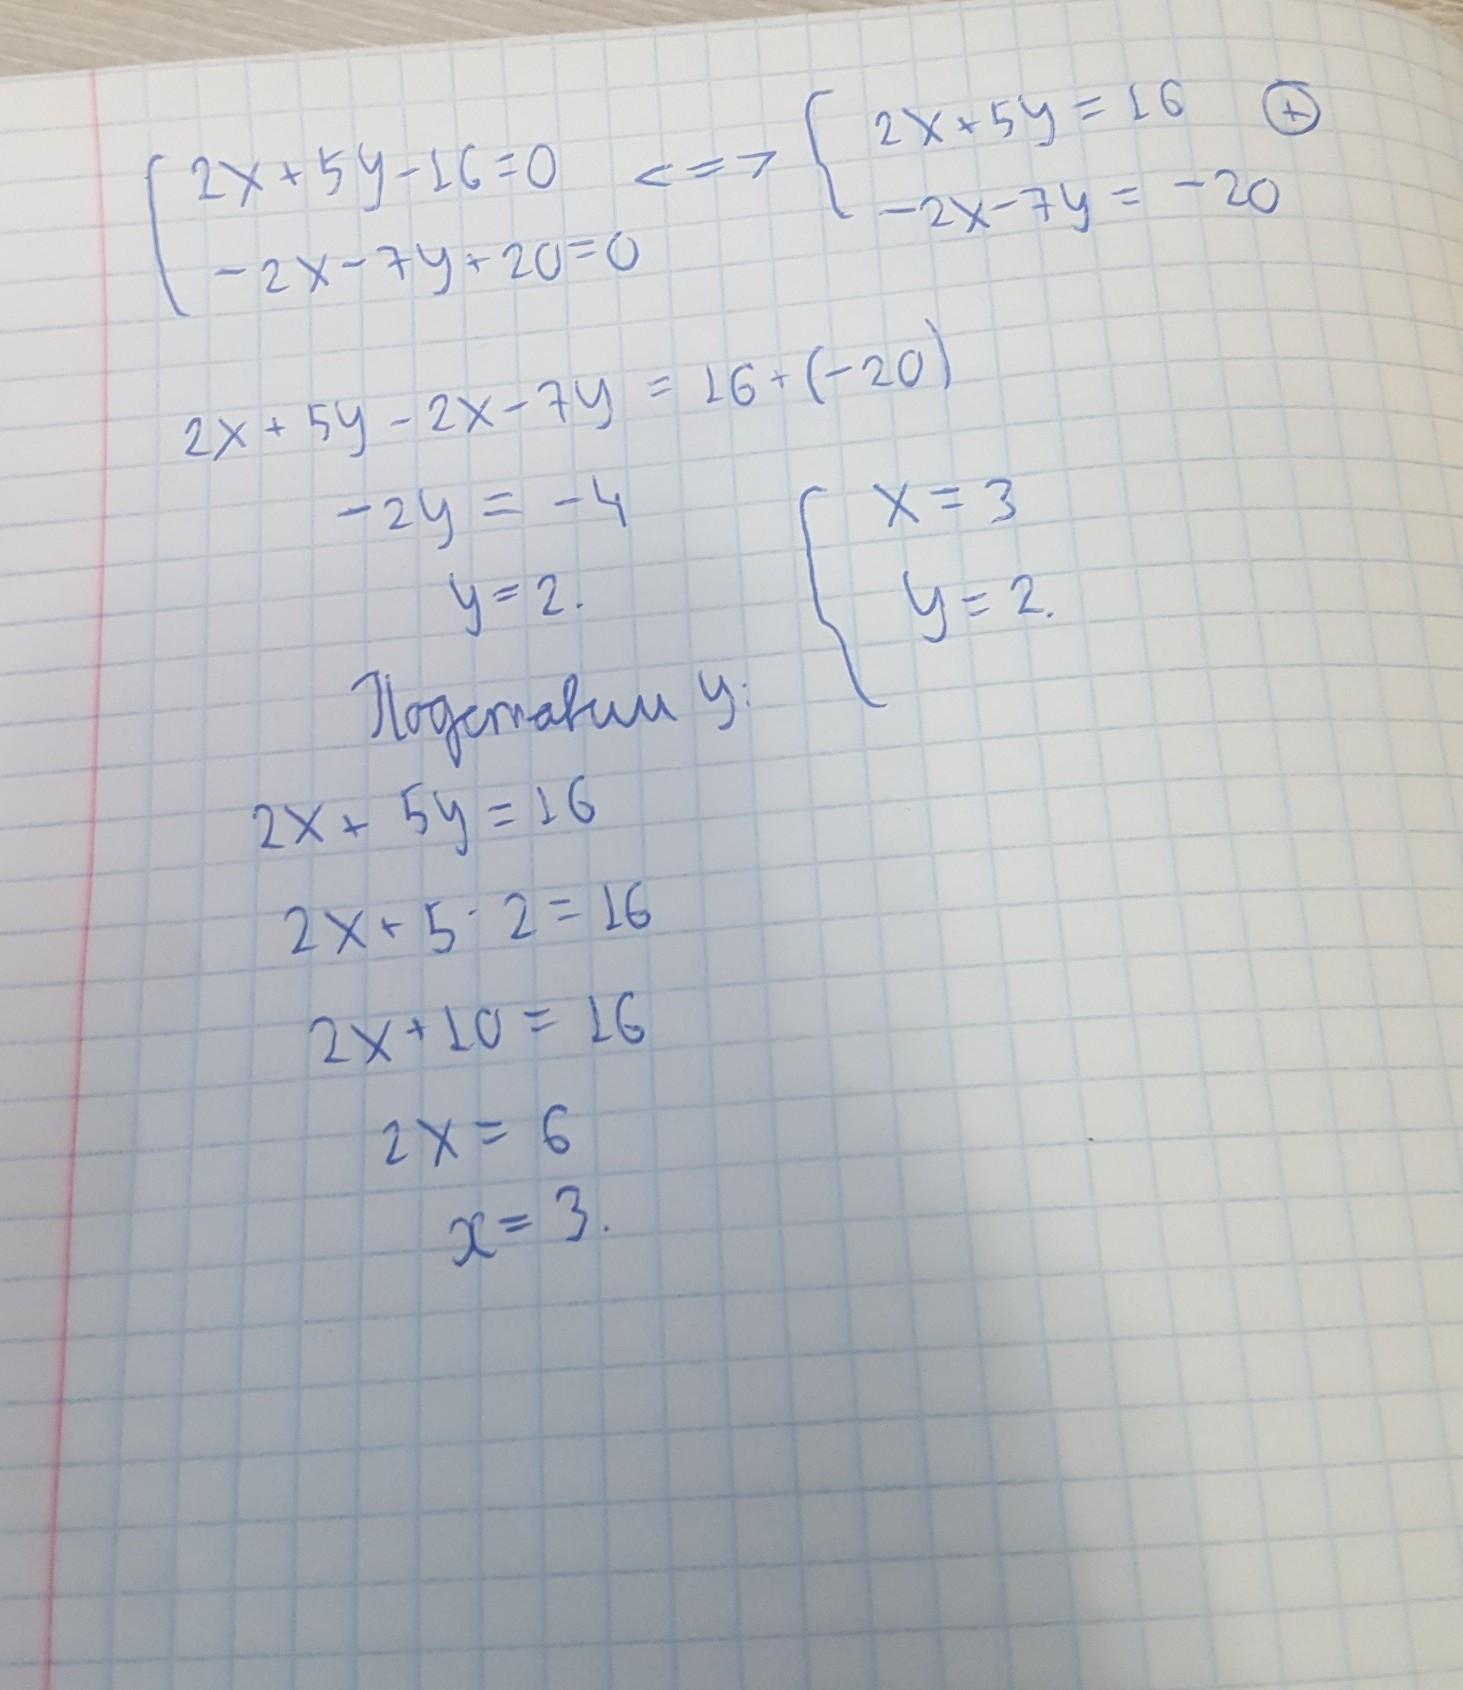 2x+5y-16=0 <=> 2x+5y=16 ⊕
-2x-7y+20=0 -2x-7y=-20
2x+5y-2x-7y=16+(-20)
-2y=-4
y=2.
x=3
y=2.
Подставим y:
2x+5y=16
2x+5·2=16
2x+10=16
2x=6
x=3.